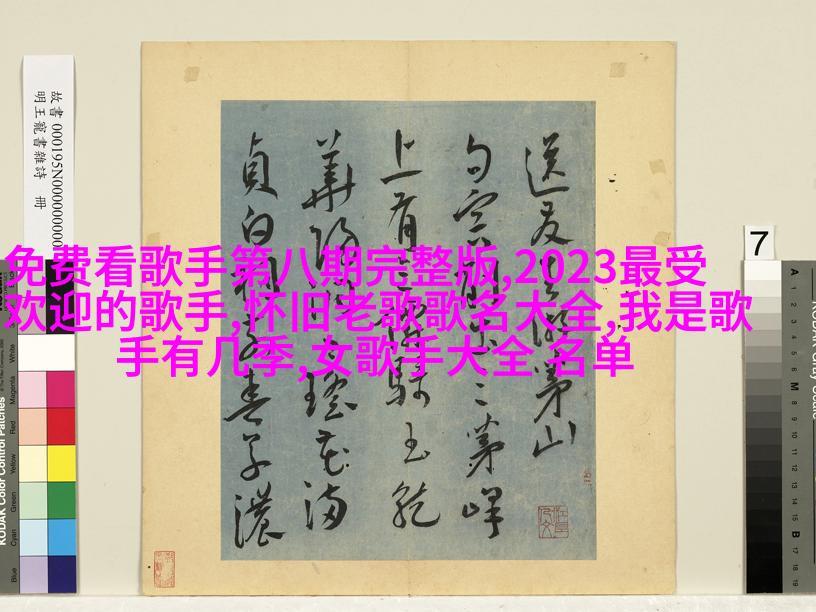 免费看歌手第八期完整版,2023最受
欢迎的歌手,怀旧老歌歌名大全,我是歌
手有几季,女歌手大全 名单
故書 000195N000000000
明王寵書雜詩 冊
送友生游茅山
句 茅峰
上有 玉龍
華陽 瑤花滿
貞白 春草濃
7
KODAK Color Control Patches
White
Magenta
Red
Yellow
Green
Cyan
Blue
A
1
2
3
4
5
6
M
8
9
10
11
12
13
14
15
B
17
18
19